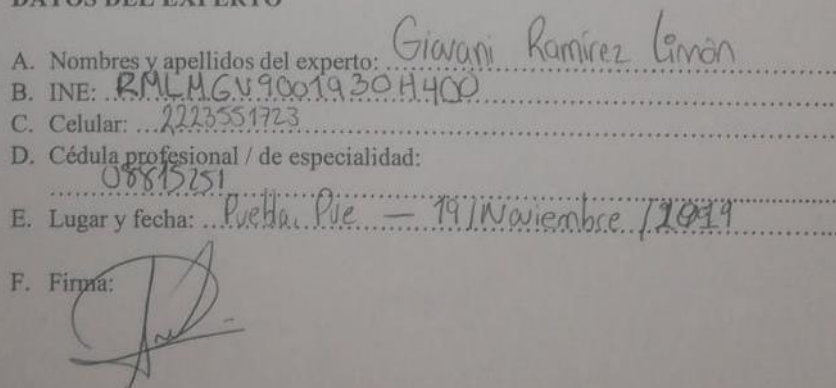 DATOS DEL EXPERTO
A. Nombres y apellidos del experto: Giovani Ramírez Limón
B. INE: RMLMGV90019930H400
C. Celular: 2223551723
D. Cédula profesional / de especialidad:
08815251
E. Lugar y fecha: Puebla, Pue — 19/Noviembre/2019
F. Firma: